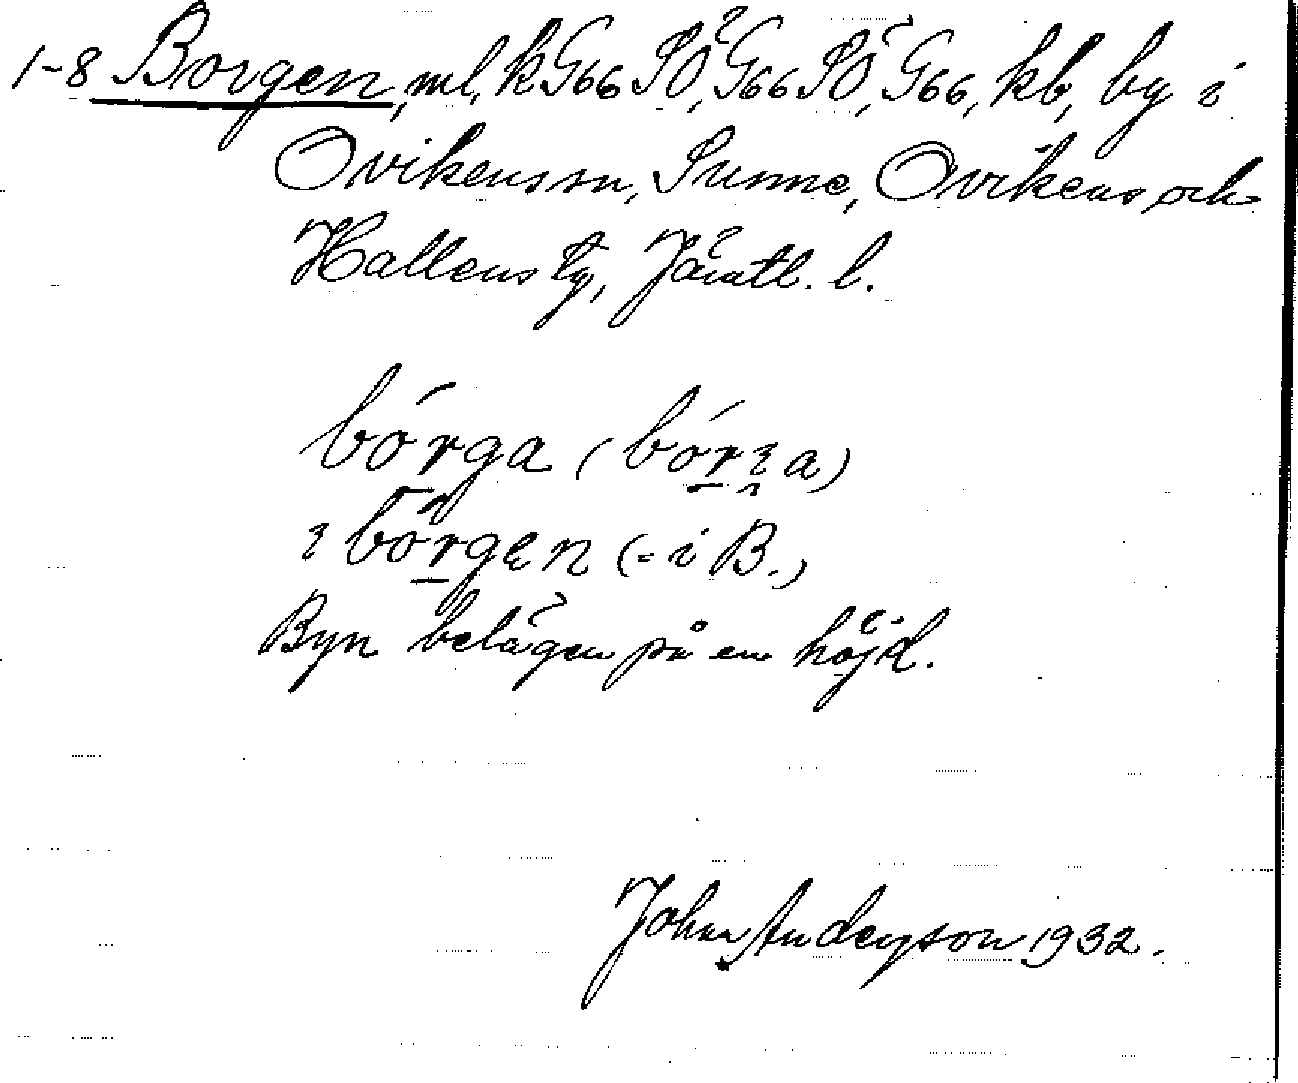 1-8 Borgen, ml, k G66 SÖ, G66 SÖ, G66, kb, by i
Ovikens sn, Sunne, Ovikens och
Hallens tg, Jämtl. l.
bórga (bórꝛa)
ı bórgen (= i B.)
Byn belägen på en höjd.
John Anderson 1932.